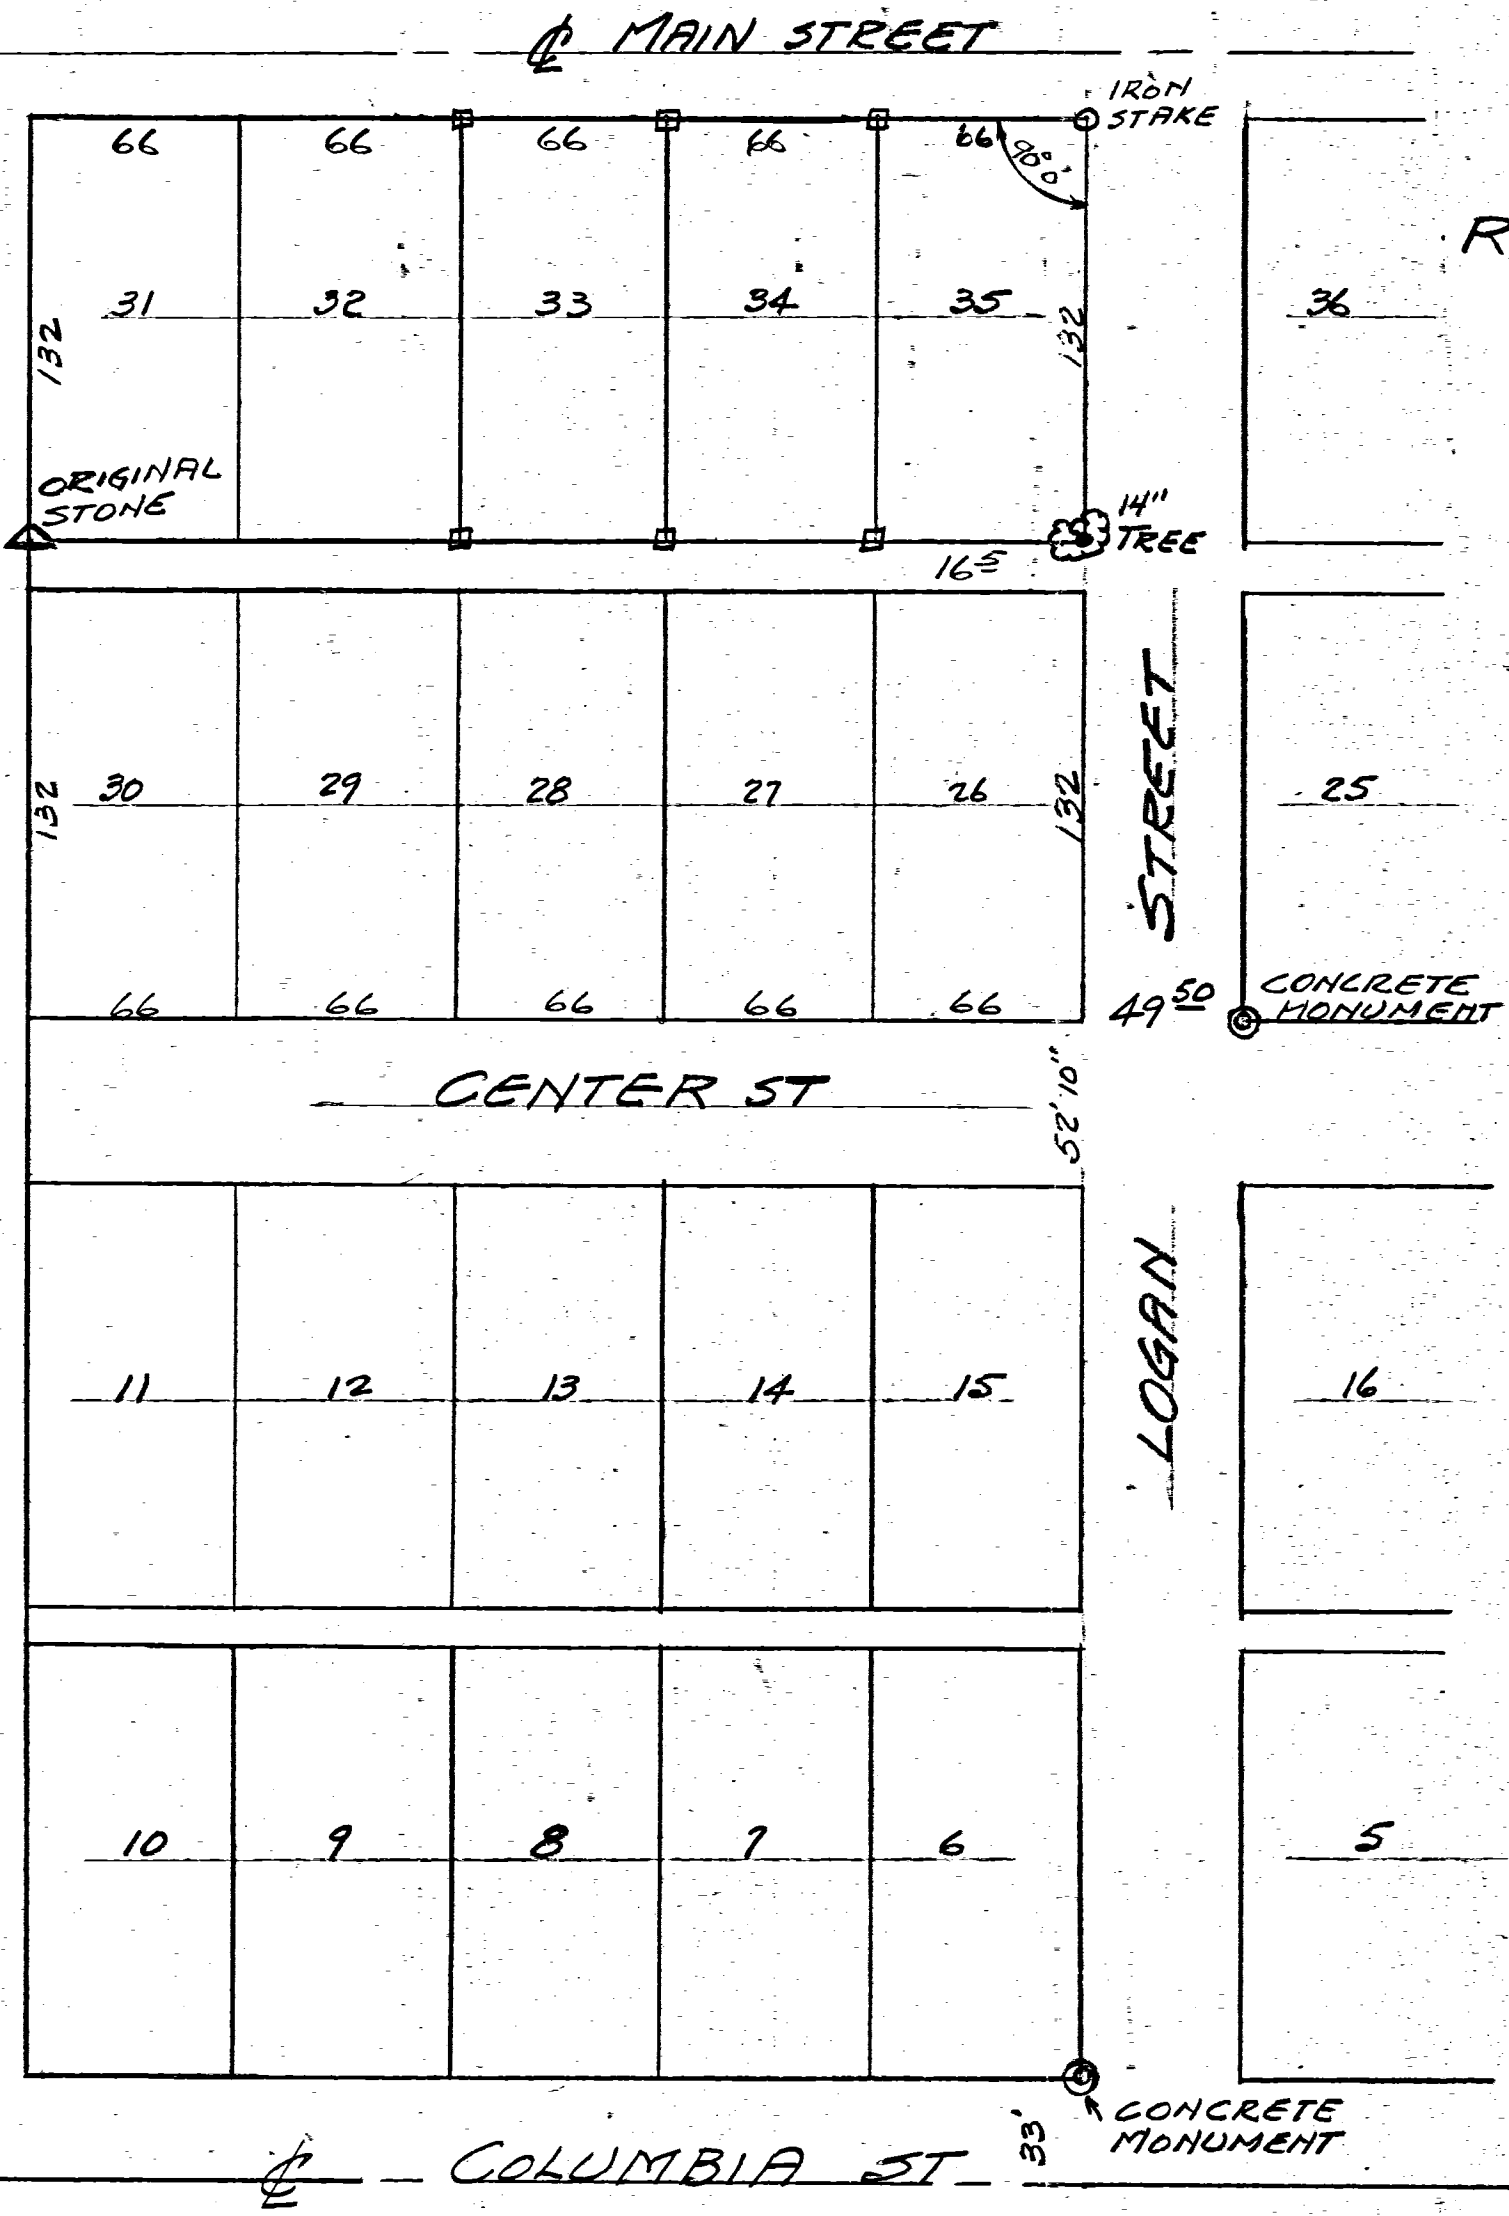 ℄ MAIN STREET
IRON
STAKE
66 66 66 66 66
90°0'
R
31 32 33 34 35 36
132 132
ORIGINAL
STONE
14"
TREE
16⁵
30 29 28 27 26 25
132 132
STREET
66 66 66 66 66
49⁵⁰
CONCRETE
MONUMENT
CENTER ST
52'10"
LOGAN
11 12 13 14 15 16
10 9 8 7 6 5
CONCRETE
MONUMENT
33'
℄ COLUMBIA ST